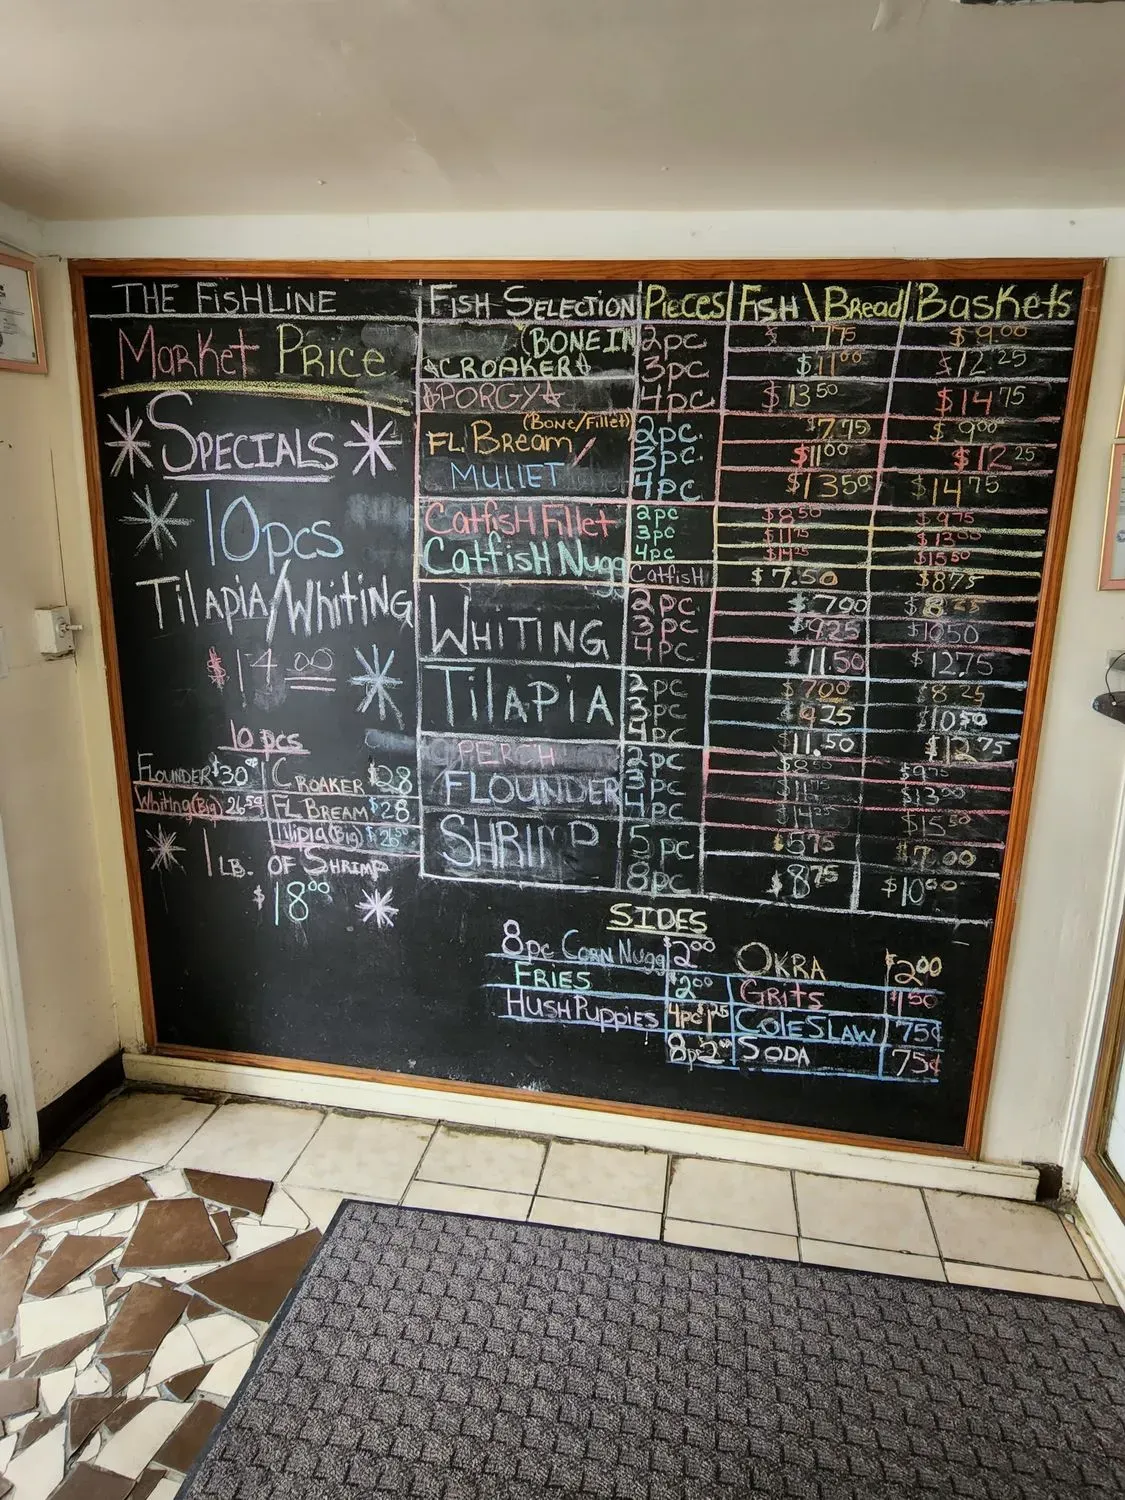 THE FISHLINE
Market Price
SPECIALS
10pcs
Tilapia/Whiting
$14 00
10 pcs
FLOUNDER $30 CROAKER $28
Whiting(Big) 26.50 FL BREAM $28
Tilapia(Big)
1 LB. OF SHRIMP
$18 00
FISH SELECTION Pieces Fish \ Bread Baskets
(BONE IN 2pc $ 7 75 $ 9.00
CROAKER 3pc $11 00 $12 25
PORGY 4pc $13 50 $14 75
(Bone/Fillet) 2pc. $7.75 $ 9 00
FL. Bream/ 3pc. $11 00 $12 25
MULLET 4pc $13 50 $14 75
Catfish Fillet 2pc $8.50 $9 75
3pc $11 75 $13 00
Catfish Nugg 4pc $14 25 $15 50
Catfish $7.50 $8 75
WHITING 2pc $7 00 $8 25
3pc $9 25 $10 50
4pc 11.50 $12.75
TILAPIA 2pc $7 00 $8 25
3pc $9 25 $10 50
4pc 11.50 $12 75
PERCH 2pc $8 50 $9 75
FLOUNDER 3pc $11 75 $13 00
4pc $14 25 $15 50
SHRIMP 5pc $5 75 $7.00
8pc $8 75 $10 00
SIDES
8pc CORN Nugg $2 00 OKRA $2 00
FRIES $2 00 GRITS $1 50
HUSH PUPPIES 4pc $1 25 COLE SLAW 75¢
8pc 2 00 SODA 75¢